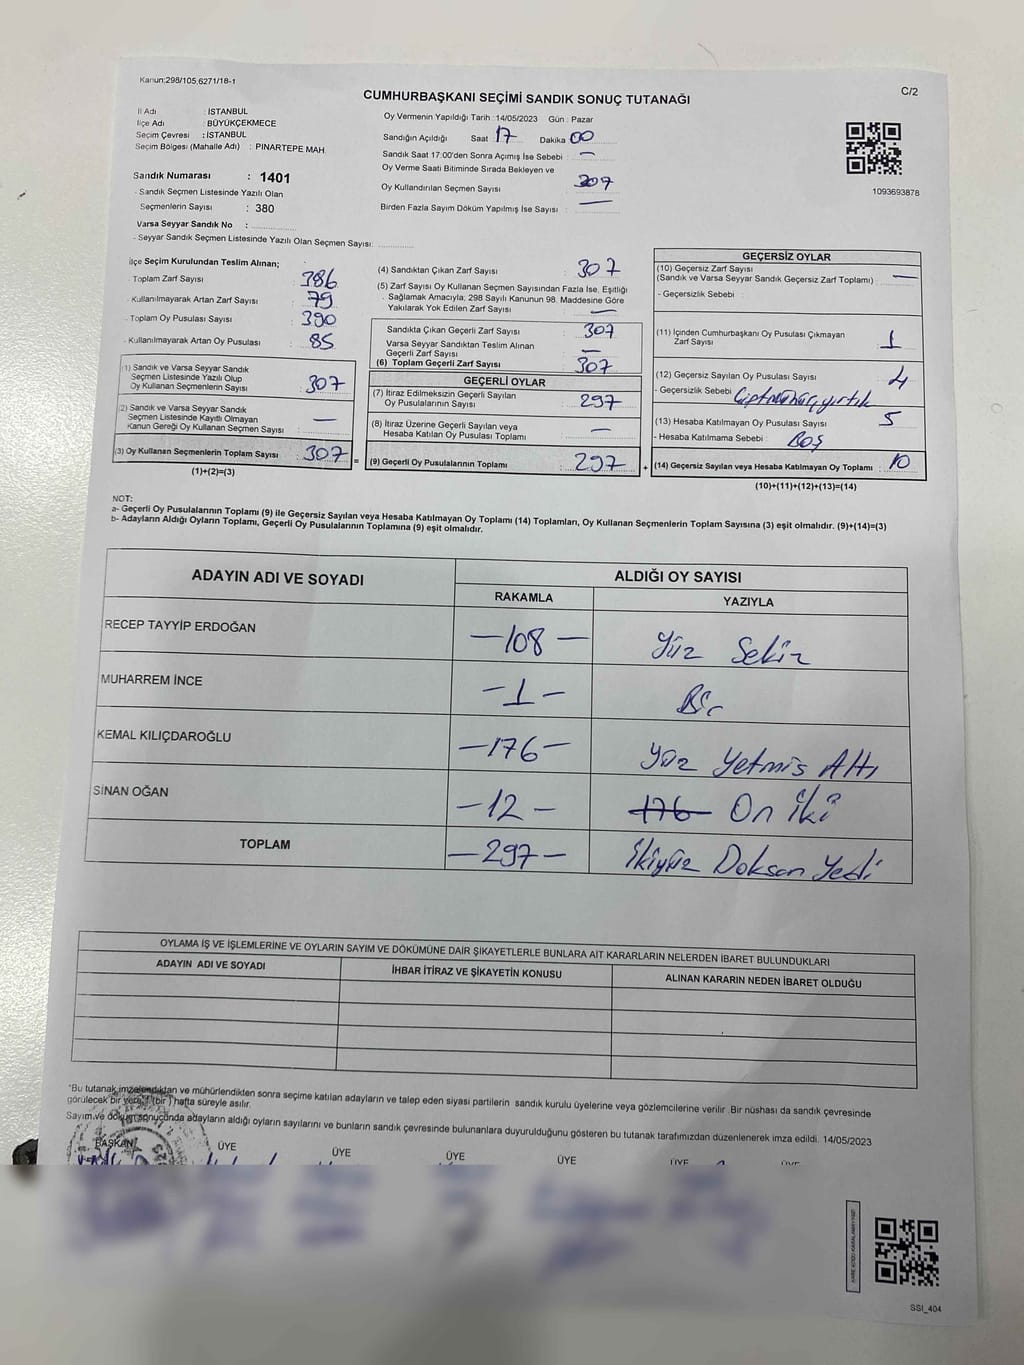 Kanun:298/105,6271/18-1
C/2
CUMHURBAŞKANI SEÇİMİ SANDIK SONUÇ TUTANAĞI
İl Adı : İSTANBUL
İlçe Adı : BÜYÜKÇEKMECE
Seçim Çevresi : İSTANBUL
Seçim Bölgesi (Mahalle Adı) : PINARTEPE MAH.
Sandık Numarası : 1401
- Sandık Seçmen Listesinde Yazılı Olan
Seçmenlerin Sayısı : 380
Varsa Seyyar Sandık No :
- Seyyar Sandık Seçmen Listesinde Yazılı Olan Seçmen Sayısı:
Oy Vermenin Yapıldığı Tarih : 14/05/2023 Gün : Pazar
Sandığın Açıldığı Saat 17 Dakika 00
Sandık Saat 17:00'den Sonra Açımış İse Sebebi : —
Oy Verme Saati Bitiminde Sırada Bekleyen ve
Oy Kullandırılan Seçmen Sayısı : 307
Birden Fazla Sayım Döküm Yapılmış İse Sayısı : —
1093693878
İlçe Seçim Kurulundan Teslim Alınan;
- Toplam Zarf Sayısı : 386
- Kullanılmayarak Artan Zarf Sayısı : 79
- Toplam Oy Pusulası Sayısı : 390
- Kullanılmayarak Artan Oy Pusulası : 85
(1) Sandık ve Varsa Seyyar Sandık
Seçmen Listesinde Yazılı Olup
Oy Kullanan Seçmenlerin Sayısı : 307
(2) Sandık ve Varsa Seyyar Sandık
Seçmen Listesinde Kayıtlı Olmayan
Kanun Gereği Oy Kullanan Seçmen Sayısı : —
(3) Oy Kullanan Seçmenlerin Toplam Sayısı : 307 =
(1)+(2)=(3)
(4) Sandıktan Çıkan Zarf Sayısı : 307
(5) Zarf Sayısı Oy Kullanan Seçmen Sayısından Fazla İse, Eşitliği
Sağlamak Amacıyla; 298 Sayılı Kanunun 98. Maddesine Göre
Yakılarak Yok Edilen Zarf Sayısı : —
Sandıkta Çıkan Geçerli Zarf Sayısı : 307
Varsa Seyyar Sandıktan Teslim Alınan
Geçerli Zarf Sayısı : —
(6) Toplam Geçerli Zarf Sayısı : 307
GEÇERLİ OYLAR
(7) İtiraz Edilmeksizin Geçerli Sayılan
Oy Pusulalarının Sayısı : 297
(8) İtiraz Üzerine Geçerli Sayılan veya
Hesaba Katılan Oy Pusulası Toplamı : —
(9) Geçerli Oy Pusulalarının Toplamı : 297 +
GEÇERSİZ OYLAR
(10) Geçersiz Zarf Sayısı
(Sandık ve Varsa Seyyar Sandık Geçersiz Zarf Toplamı) : —
- Geçersizlik Sebebi
(11) İçinden Cumhurbaşkanı Oy Pusulası Çıkmayan
Zarf Sayısı : 1
(12) Geçersiz Sayılan Oy Pusulası Sayısı : 4
- Geçersizlik Sebebi yırtık
(13) Hesaba Katılmayan Oy Pusulası Sayısı : 5
- Hesaba Katılmama Sebebi : Boş
(14) Geçersiz Sayılan veya Hesaba Katılmayan Oy Toplamı : 10
(10)+(11)+(12)+(13)=(14)
NOT:
a- Geçerli Oy Pusulalarının Toplamı (9) ile Geçersiz Sayılan veya Hesaba Katılmayan Oy Toplamı (14) Toplamları, Oy Kullanan Seçmenlerin Toplam Sayısına (3) eşit olmalıdır. (9)+(14)=(3)
b- Adayların Aldığı Oyların Toplamı, Geçerli Oy Pusulalarının Toplamına (9) eşit olmalıdır.
ADAYIN ADI VE SOYADI ALDIĞI OY SAYISI
RAKAMLA YAZIYLA
RECEP TAYYİP ERDOĞAN —108— Yüz Sekiz
MUHARREM İNCE —1— Bir
KEMAL KILIÇDAROĞLU —176— Yüz Yetmiş Altı
SİNAN OĞAN —12— 176 On İki
TOPLAM —297— İkiyüz Doksan Yedi
OYLAMA İŞ VE İŞLEMLERİNE VE OYLARIN SAYIM VE DÖKÜMÜNE DAİR ŞİKAYETLERLE BUNLARA AİT KARARLARIN NELERDEN İBARET BULUNDUKLARI
ADAYIN ADI VE SOYADI İHBAR İTİRAZ VE ŞİKAYETİN KONUSU ALINAN KARARIN NEDEN İBARET OLDUĞU
"Bu tutanak imzalandıktan ve mühürlendikten sonra seçime katılan adayların ve talep eden siyasi partilerin sandık kurulu üyelerine veya gözlemcilerine verilir. Bir nüshası da sandık çevresinde
görülecek bir yere 1 (bir) hafta süreyle asılır.
Sayım ve döküm sonucunda adayların aldığı oyların sayılarını ve bunların sandık çevresinde bulunanlara duyurulduğunu gösteren bu tutanak tarafımızdan düzenlenerek imza edildi. 14/05/2023
BAŞKAN ÜYE ÜYE ÜYE ÜYE ÜYE ÜYE
SSI_404